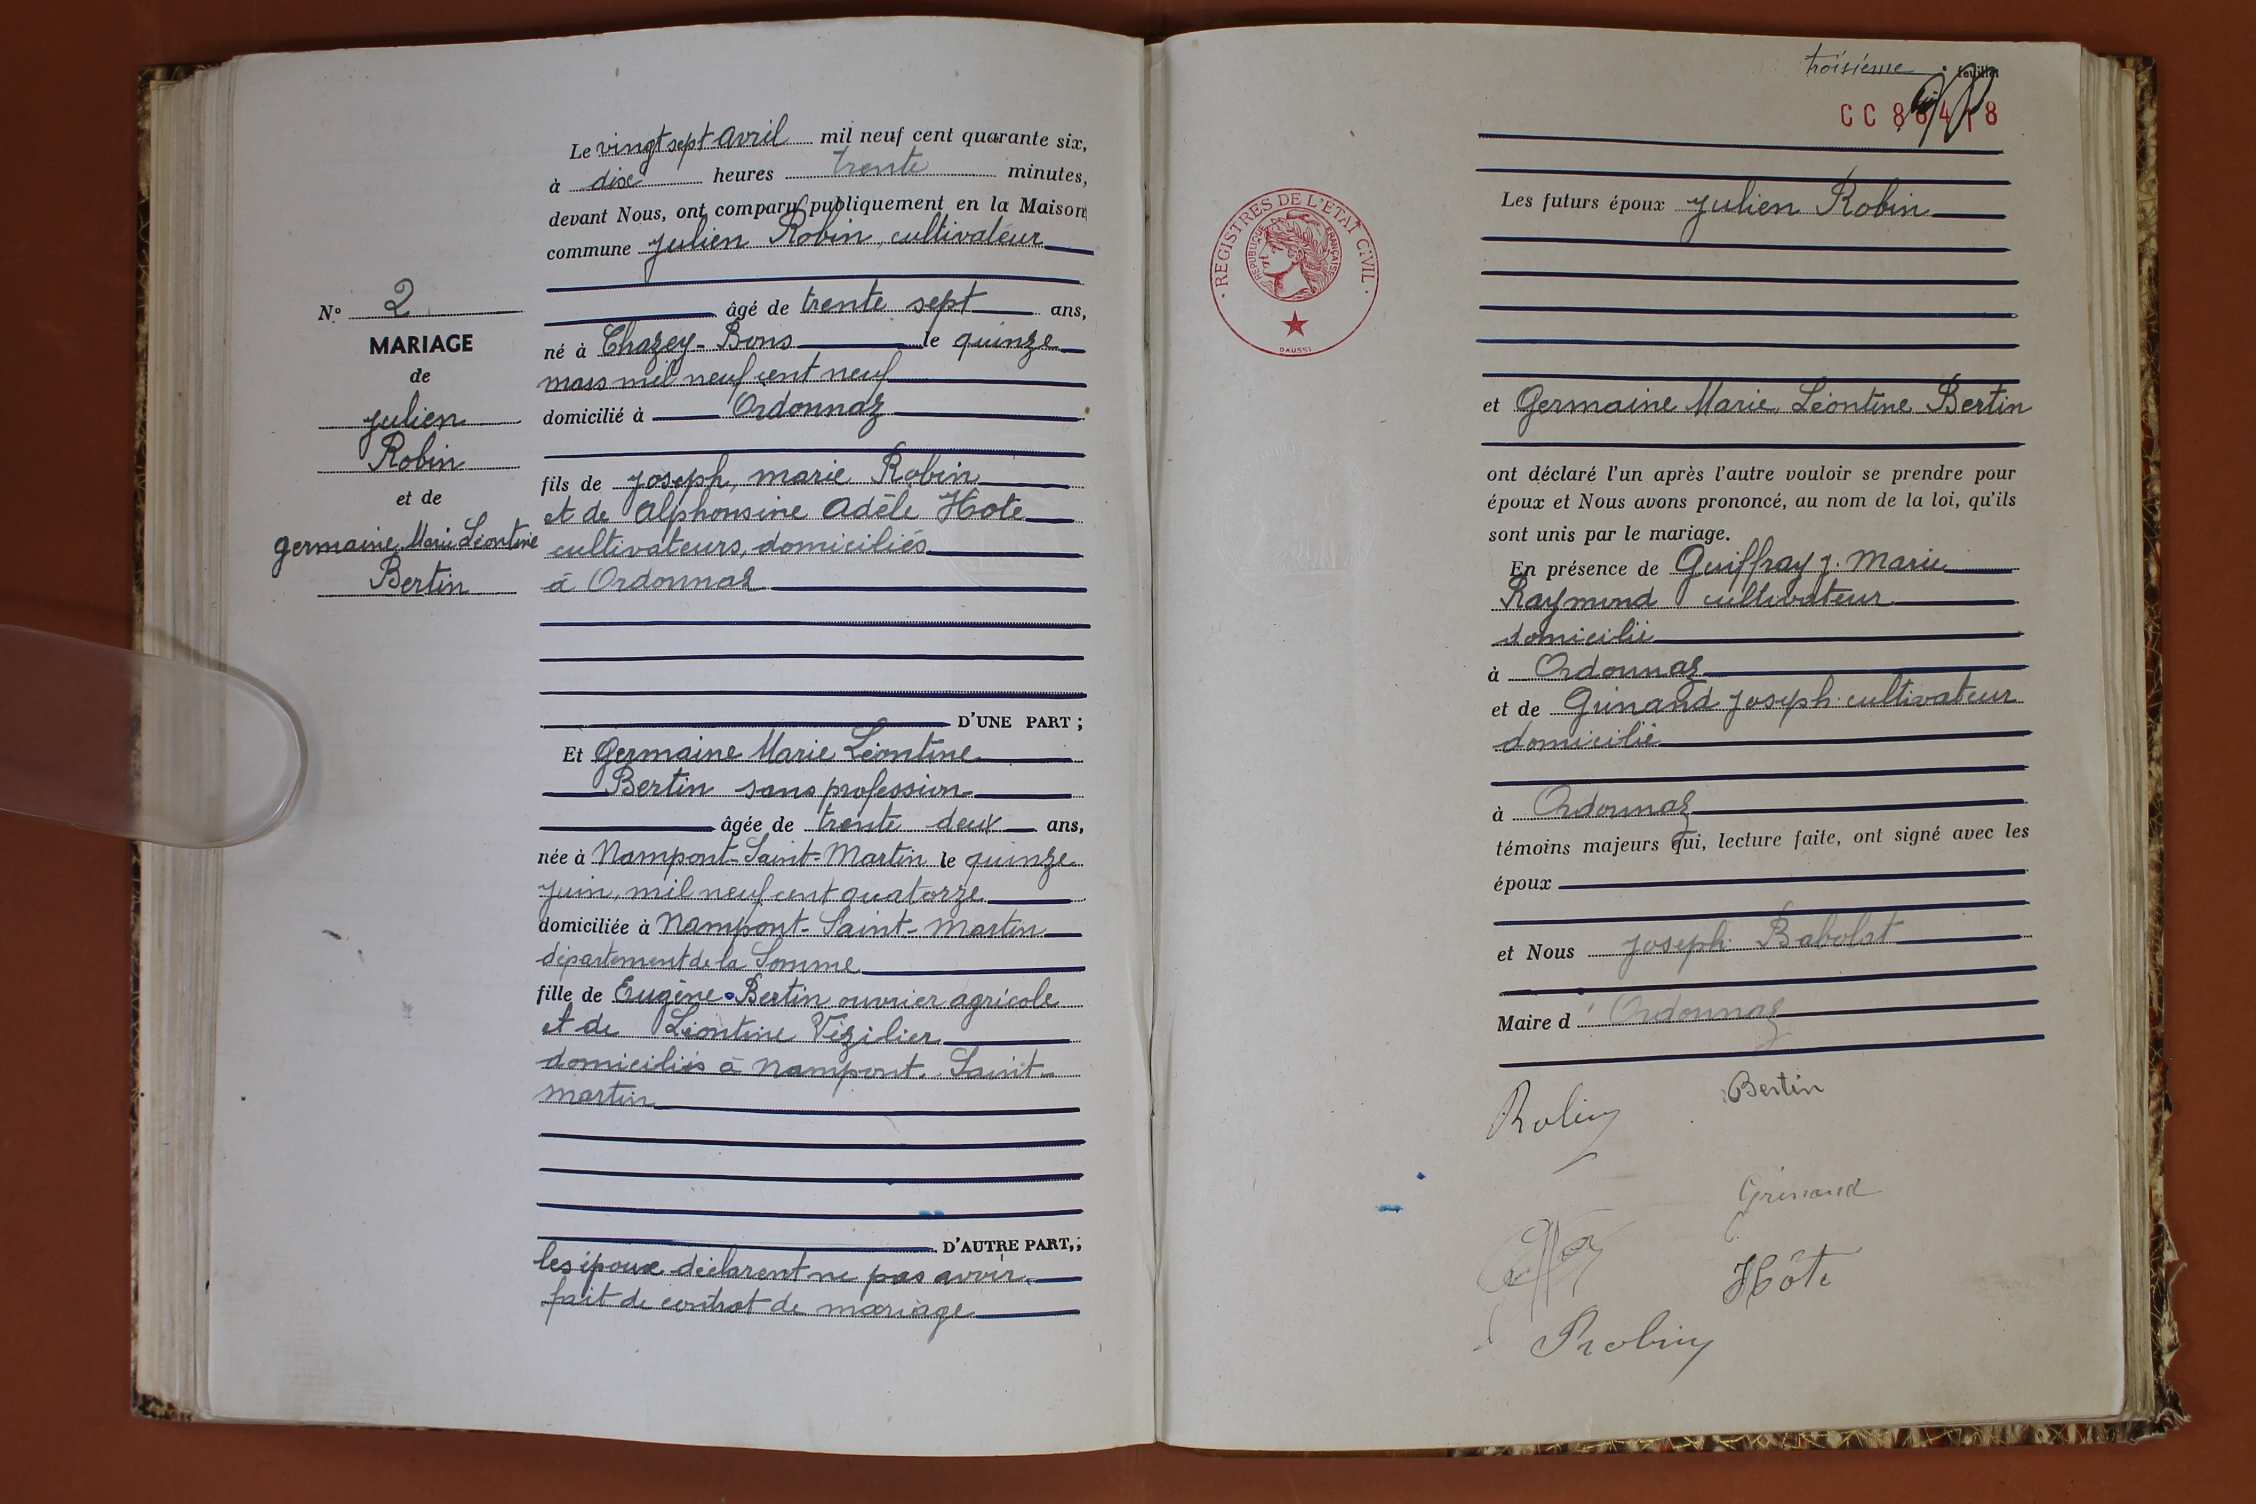 Le vingt sept avril mil neuf cent quarante six,
à dix heures trente minutes,
devant Nous, ont comparu publiquement en la Maison
commune Julien Robin, cultivateur
N° 2
MARIAGE
de
Julien
Robin
et de
Germaine Marie Léontine
Bertin
âgé de trente sept ans,
né à Chazey-Bons le quinze
mars mil neuf cent neuf
domicilié à Ordonnaz
fils de Joseph, marie Robin
et de Alphonsine Adèle Hote
cultivateurs, domiciliés
à Ordonnaz
D'UNE PART ;
Et Germaine Marie Léontine
Bertin sans profession
âgée de trente deux ans,
née à Nampont-Saint-Martin le quinze
juin, mil neuf cent quatorze
domiciliée à Nampont-Saint-Martin
département de la Somme
fille de Eugène Bertin ouvrier agricole
et de Léontine Vézilier
domiciliés à Nampont-Saint-
Martin
D'AUTRE PART, ;
les époux déclarent ne pas avoir
fait de contrat de mariage
troisième feuillet
REGISTRES DE L'ETAT CIVIL
REPUBLIQUE FRANÇAISE
DAUSSI
Les futurs époux Julien Robin
et Germaine Marie Léontine Bertin
ont déclaré l'un après l'autre vouloir se prendre pour
époux et Nous avons prononcé, au nom de la loi, qu'ils
sont unis par le mariage.
En présence de Guiffray J. Marie
Raymond cultivateur
domicilié
à Ordonnaz
et de Grinand Joseph cultivateur
domicilié
à Ordonnaz
témoins majeurs qui, lecture faite, ont signé avec les
époux
et Nous Joseph Babolat
Maire d'Ordonnaz
Robin
Bertin
Grinand
Hôte
Robin